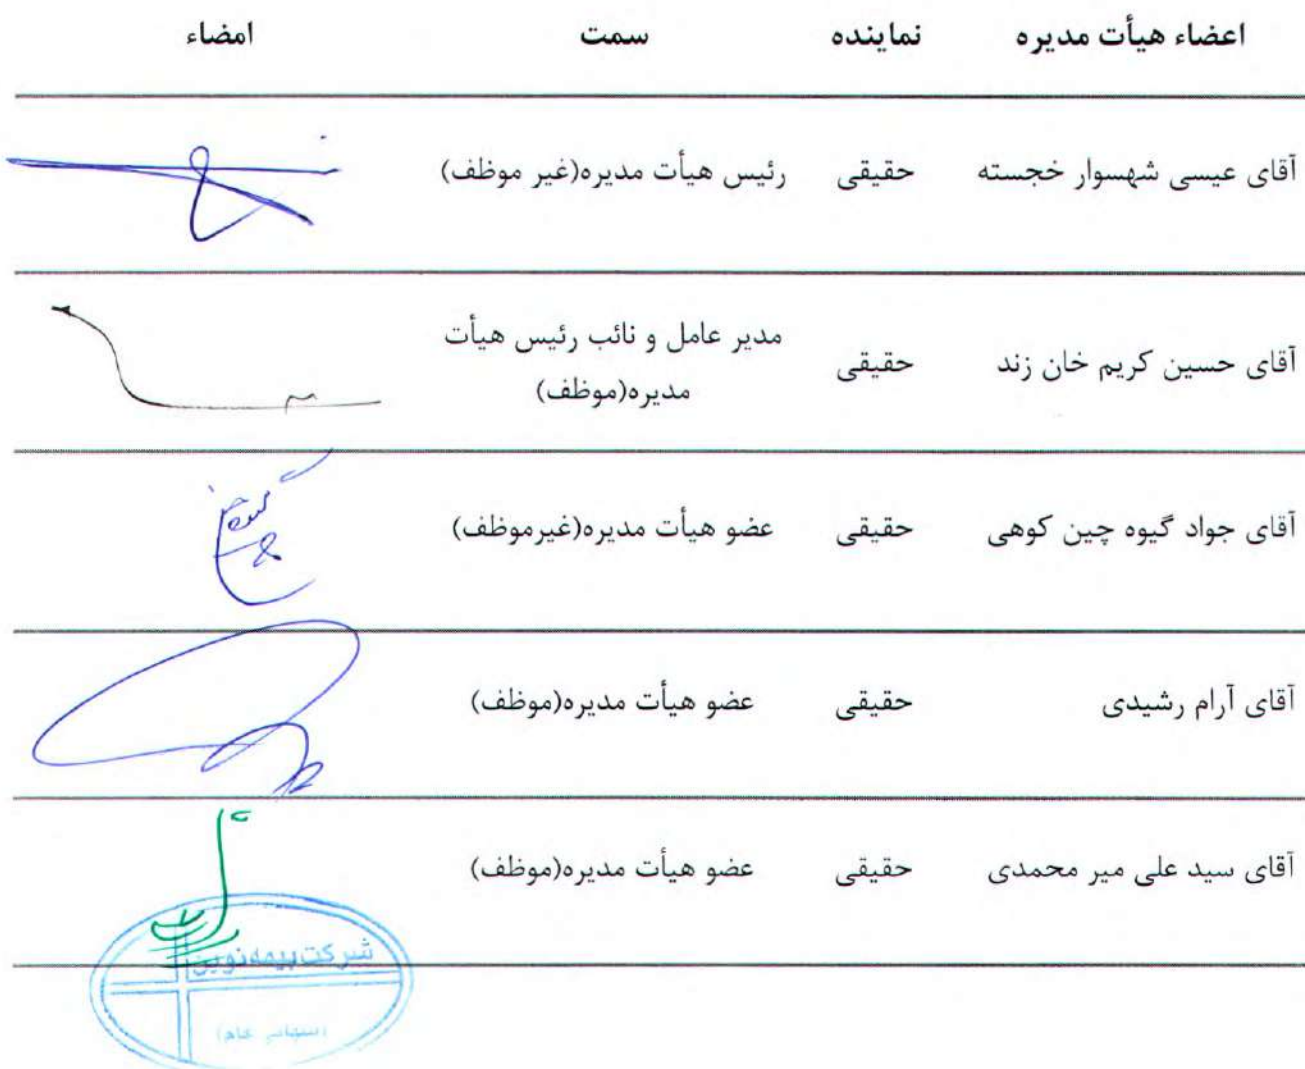 اعضاء هیأت مدیره نماینده سمت امضاء
آقای عیسی شهسوار خجسته حقیقی رئیس هیأت مدیره(غیر موظف)
آقای حسین کریم خان زند حقیقی مدیر عامل و نائب رئیس هیأت
مدیره(موظف)
آقای جواد گیوه چین کوهی حقیقی عضو هیأت مدیره(غیرموظف)
آقای آرام رشیدی حقیقی عضو هیأت مدیره(موظف)
آقای سید علی میر محمدی حقیقی عضو هیأت مدیره(موظف)
شرکت بیمه نوین
(سهامی عام)